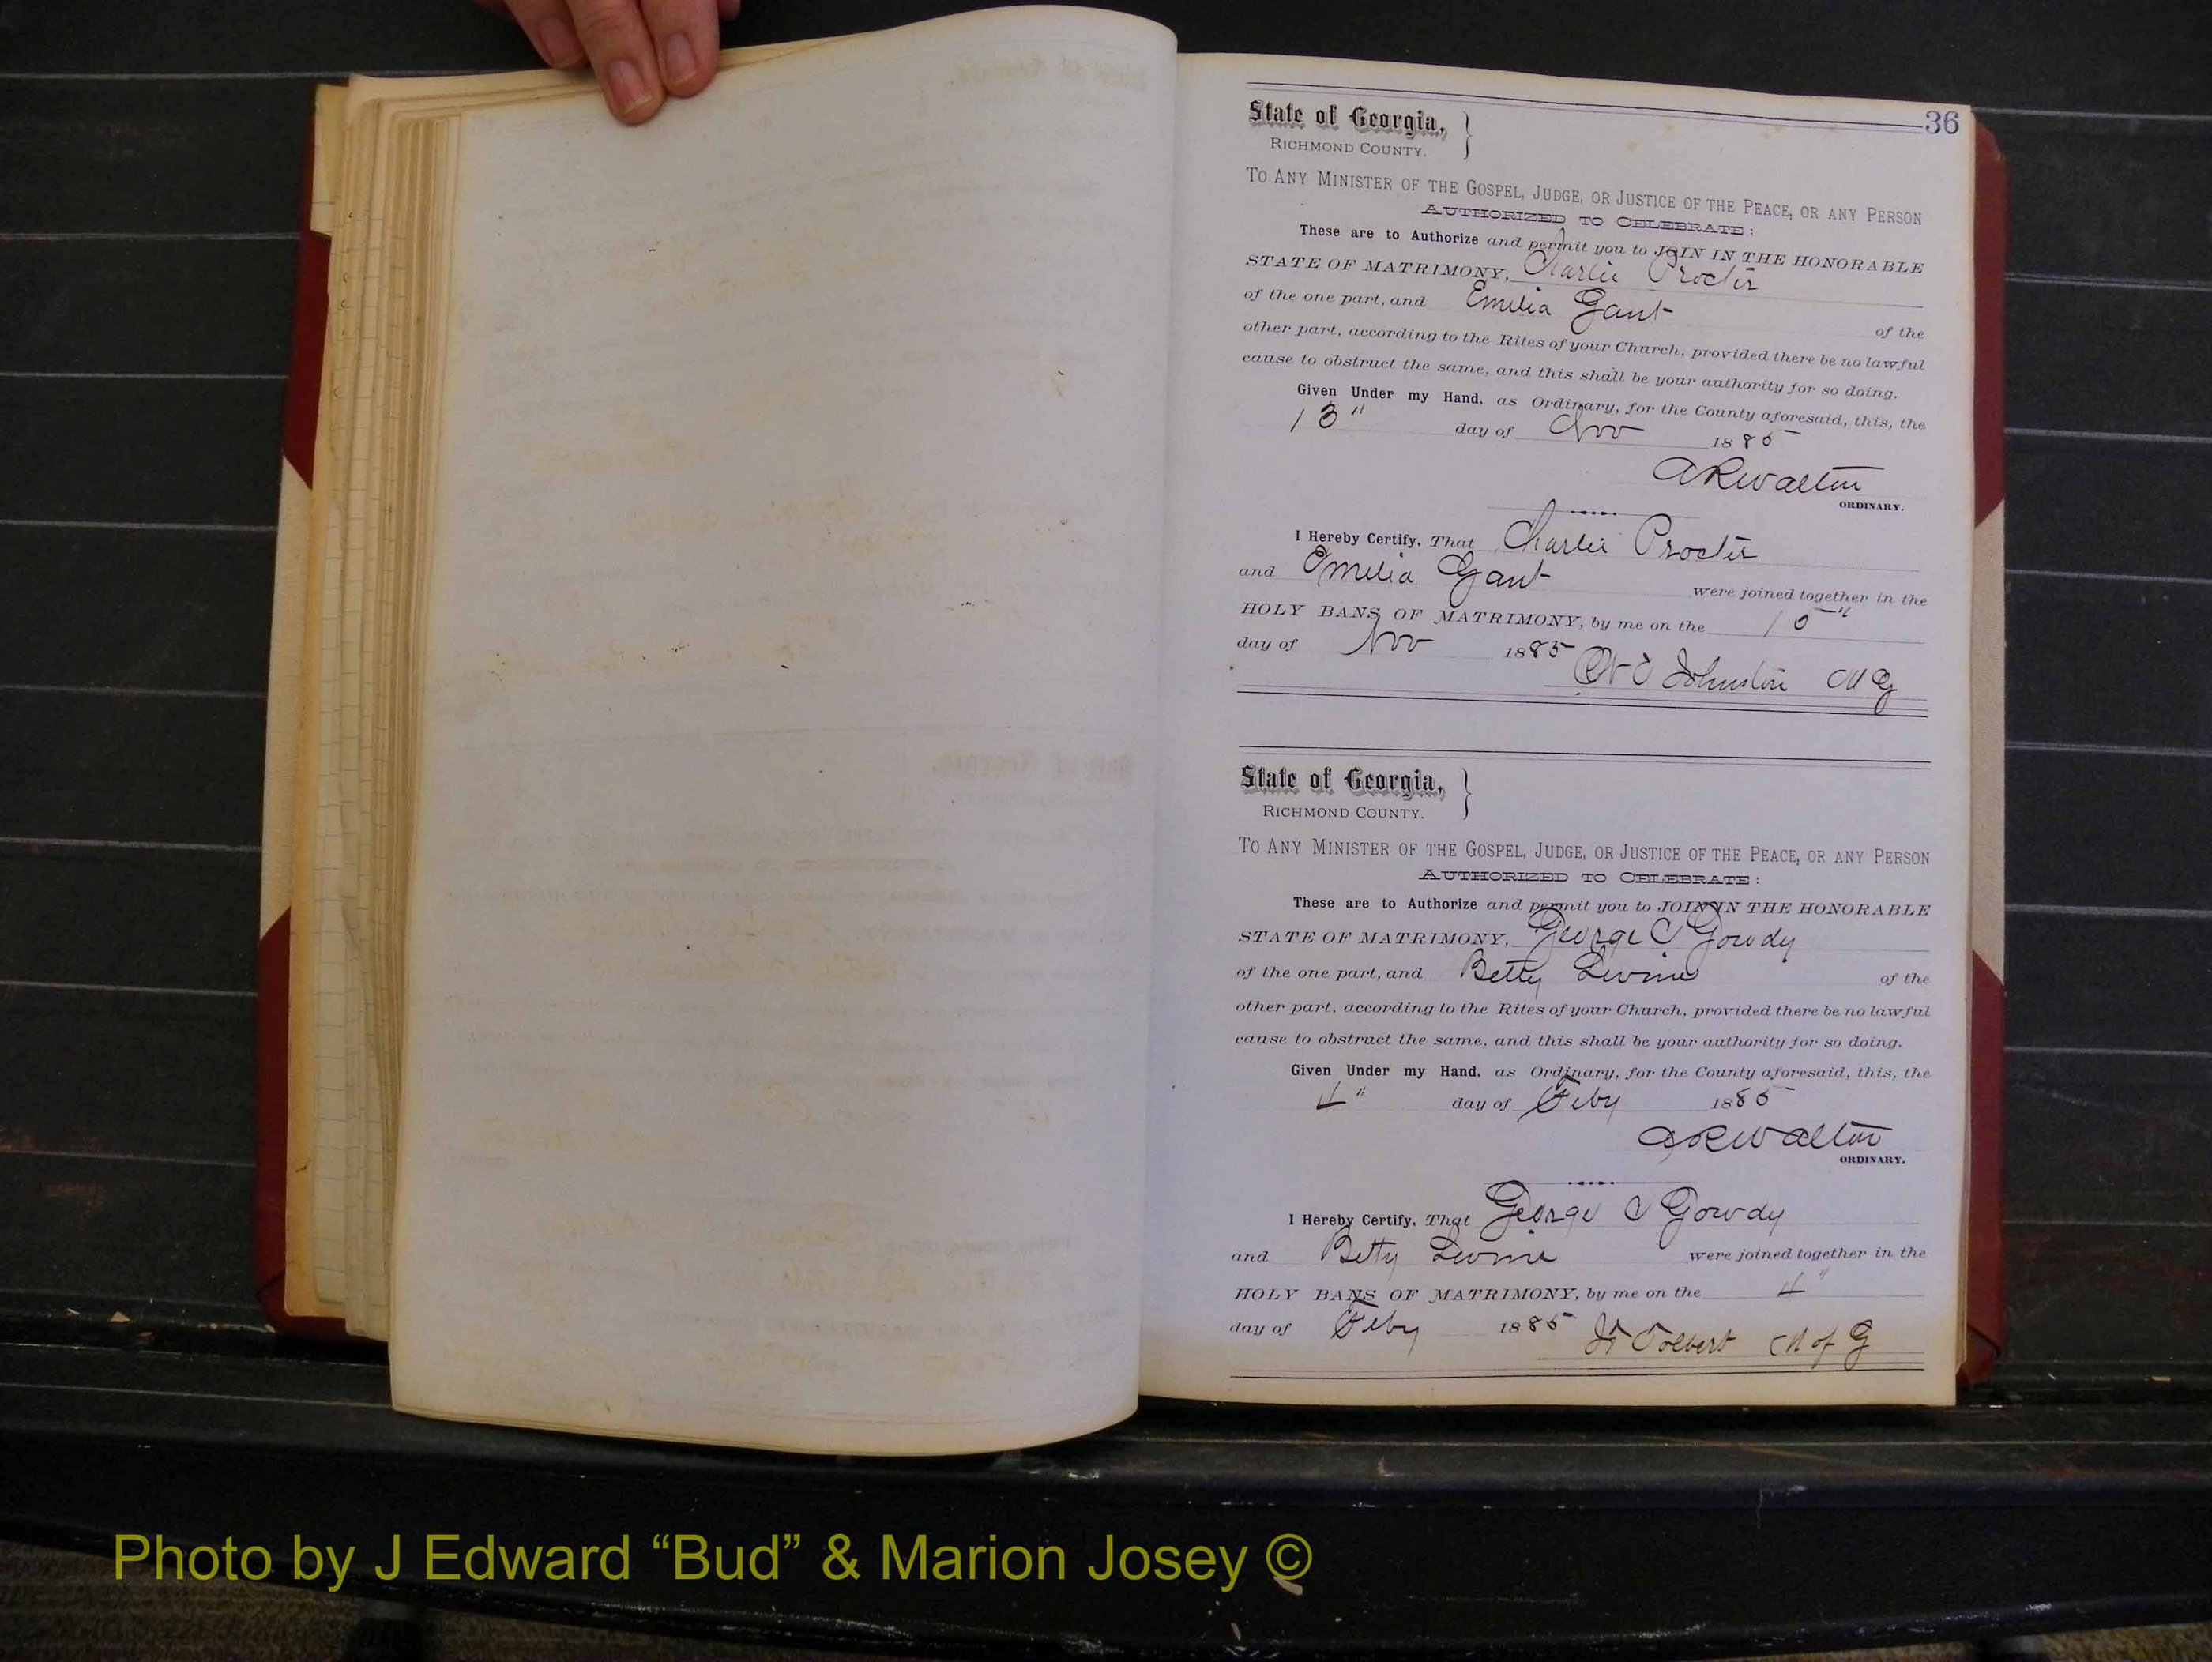 36
State of Georgia,
RICHMOND COUNTY.
TO ANY MINISTER OF THE GOSPEL, JUDGE, OR JUSTICE OF THE PEACE, OR ANY PERSON
AUTHORIZED TO CELEBRATE:
These are to Authorize and permit you to JOIN IN THE HONORABLE
STATE OF MATRIMONY, Charlie Procter
of the one part, and Emelia Gant of the
other part, according to the Rites of your Church, provided there be no lawful
cause to obstruct the same, and this shall be your authority for so doing.
Given Under my Hand, as Ordinary, for the County aforesaid, this, the
13" day of Nov 1885
A R Walton
ORDINARY.
I Hereby Certify, That Charlie Procter
and Emelia Gant were joined together in the
HOLY BANS OF MATRIMONY, by me on the 15"
day of Nov 1885
Johnston M G
State of Georgia,
RICHMOND COUNTY.
TO ANY MINISTER OF THE GOSPEL, JUDGE, OR JUSTICE OF THE PEACE, OR ANY PERSON
AUTHORIZED TO CELEBRATE:
These are to Authorize and permit you to JOIN IN THE HONORABLE
STATE OF MATRIMONY, George C Gowdy
of the one part, and Betty of the
other part, according to the Rites of your Church, provided there be no lawful
cause to obstruct the same, and this shall be your authority for so doing.
Given Under my Hand, as Ordinary, for the County aforesaid, this, the
4" day of Feby 1885
A R Walton
ORDINARY.
I Hereby Certify, That George C Gowdy
and Betty were joined together in the
HOLY BANS OF MATRIMONY, by me on the 4"
day of Feby 1885
Tolbert M of G
Photo by J Edward “Bud” & Marion Josey ©